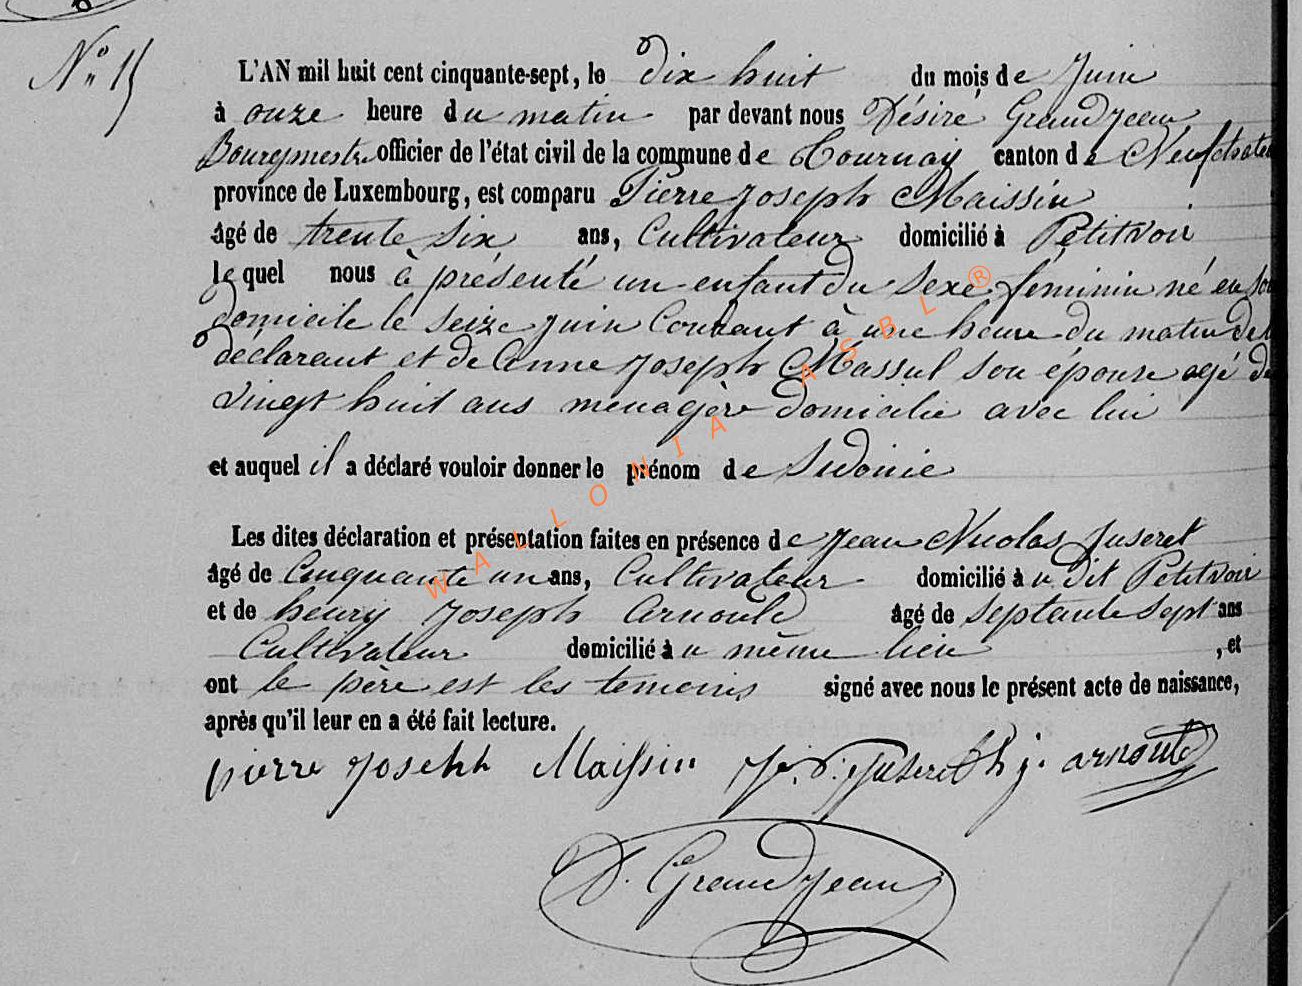 N° 15
L'AN mil huit cent cinquante-sept, le dix huit du mois de Juin
à onze heure du matin par devant nous Désiré Grandjean
Bourgmestre officier de l'état civil de la commune de Tournay canton de Neufchateau
province de Luxembourg, est comparu Pierre Joseph Maissin
âgé de trente six ans, Cultivateur domicilié à Petitvoir
lequel nous à présenté un enfant du sexe féminin né en son
domicile le seize Juin Courant à une heure du matin de
déclarant et de Anne Joseph Massul son épouse agé de
vingt huit ans menagère domicilie avec lui
et auquel il a déclaré vouloir donner le prénom de Sidonie
Les dites déclaration et présentation faites en présence de Jean Nicolas Juseret
âgé de Cinquante un ans, Cultivateur domicilié à u dit Petitvoir
et de henry Joseph Arnould âgé de septante sept ans
Cultivateur domicilié à u même lieu , et
ont le père est les temoins signé avec nous le présent acte de naissance,
après qu'il leur en a été fait lecture.
pierre Joseph Maissin J. N. Juseret h j. arnould
D. Grandjean
WALLONIA ASBL ®